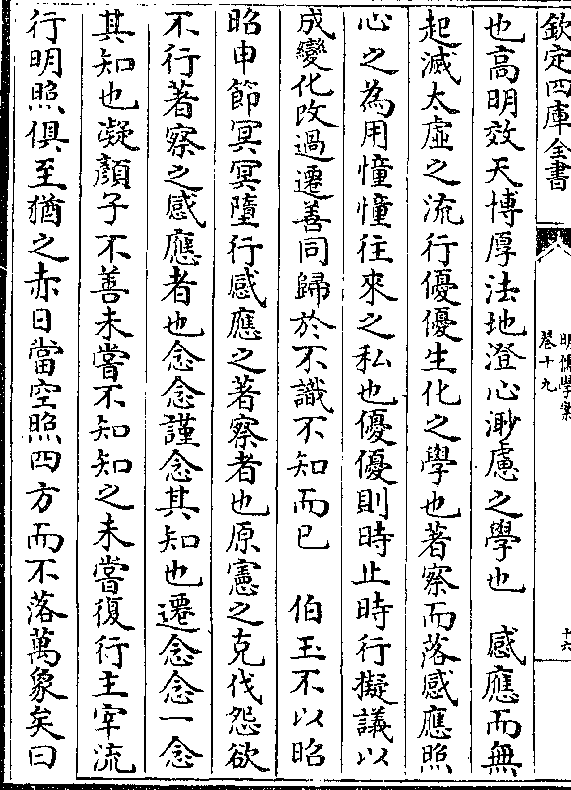 欽定四庫全書
明儒學案
卷十九
十六
也高明效天博厚法地澄心渺慮之學也　感應而無
起滅太虛之流行優優生化之學也著察而落感應照
心之為用憧憧往來之私也優優則時止時行擬議以
成變化改過遷善同歸於不識不知而已　伯玉不以昭
昭申節冥冥墮行感應之著察者也原憲之克伐怨欲
不行著察之感應者也念念謹念其知也遷念念一念
其知也凝顏子不善未嘗不知知之未嘗復行主宰流
行明照俱至猶之赤日當空照四方而不落萬象矣曰